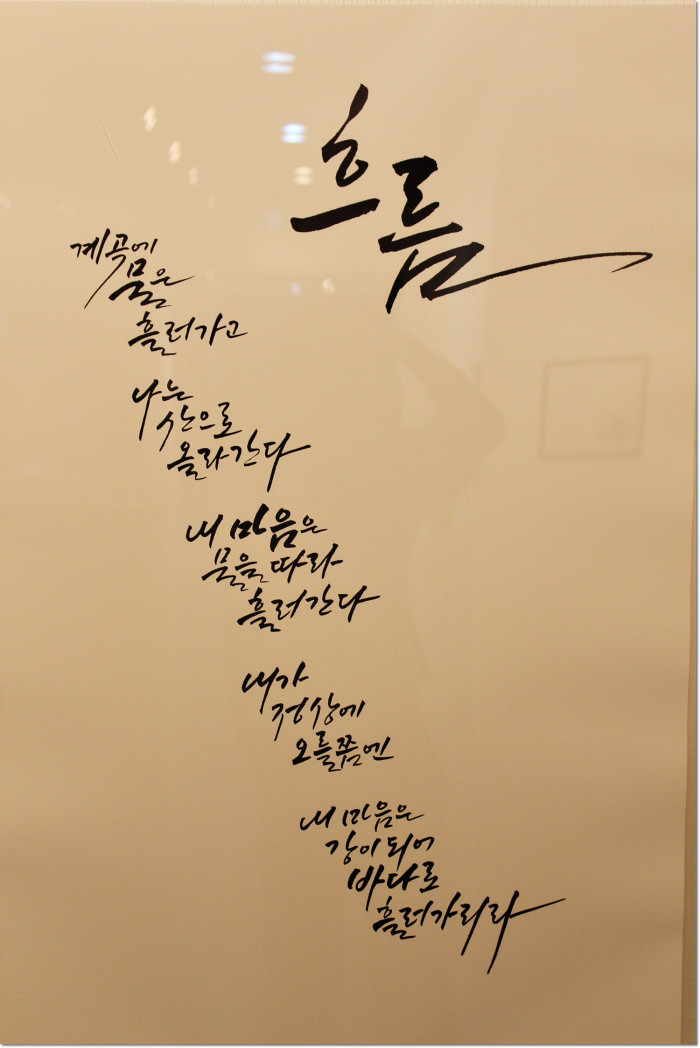 흐름
계곡에
물은
흘러가고
나는
산으로
올라간다
내 마음은
물을 따라
흘러간다
내가
정상에
오를쯤엔
내 마음은
강이 되어
바다로
흘러가리라